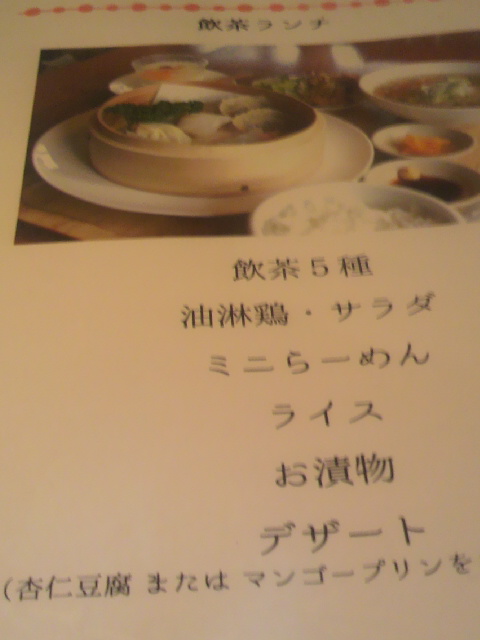 飲茶ランチ
飲茶5種
油淋鶏・サラダ
ミニらーめん
ライス
お漬物
デザート
(杏仁豆腐 または マンゴープリンを